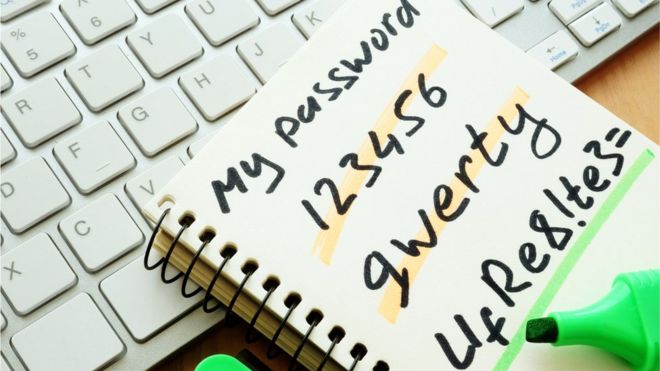 % 5
^ 6
U
Y
T
R
J
H
G
F
D
V
C
X
Home
My password
123456
qwerty
UfRe8!te3=